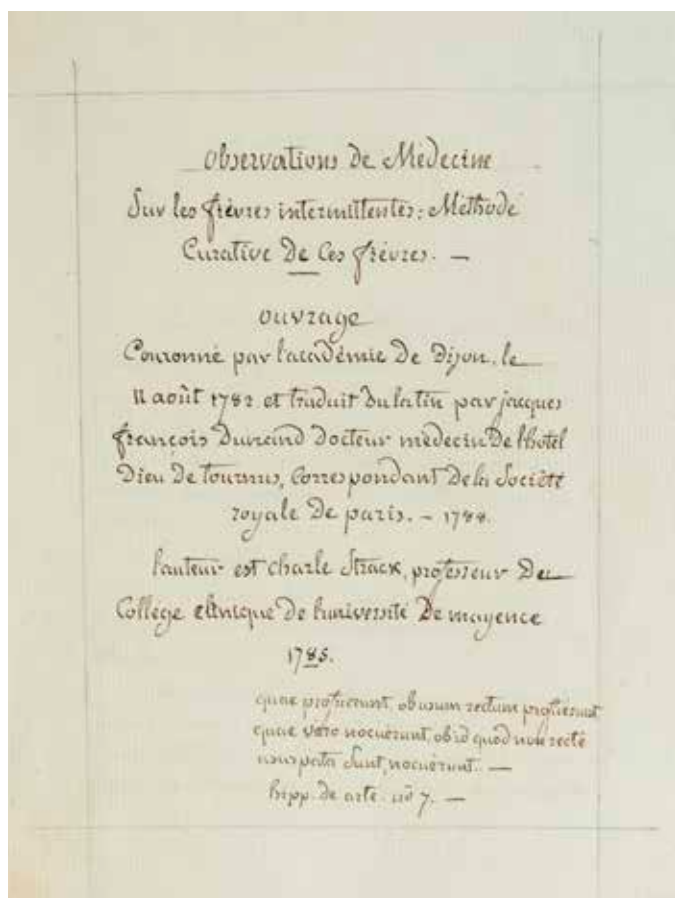 observations de Medecine
Sur les fièvres intermittentes : Methode
Curative De Ces fièvres. —
ouvrage
Couronné par l'académie De Dijon, le
11 août 1782 et traduit du latin par jacques
françois Durand Docteur médecin De l'hotel
Dieu De tournus, Correspondant De la Société
royale De paris. – 1788.
l'auteur est charle Strack, professeur De
College clinique De l'université De mayence
1785.
quae profuerunt, ob usum rectum profuerunt
quae vero nocuerunt, ob id quod non recte
usurpata Sunt, nocuerunt. —
hipp. de arte. nº 7. —